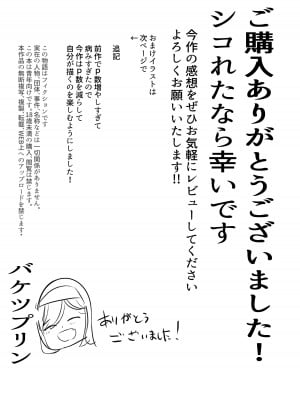 ご購入ありがとうございました!
シコれたなら幸いです
今作の感想をぜひお気軽にレビューしてください
よろしくお願いいたします!!
おまけイラストは
次ページで
↓
追記
前作でP数増やしすぎて
病みすぎたので
今作はP数を減らして
自分が描くのを楽しむようにしました!
この物語はフィクションです
実在の人物、団体、事件、名称などとは一切関係がありません。
この本は青年向けです。18歳未満の購入、閲覧は禁じます。
本作品の無断複写、複製、転載、WEB上へのアップロードを禁じます。
バケツプリン
ありがとう
ございました!